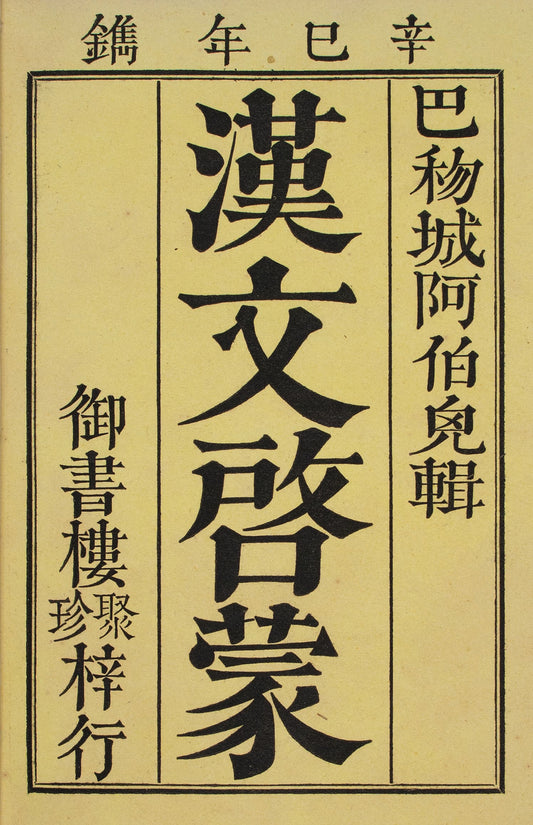 辛巳年鐫
巴物城阿伯皃輯
漢文啓蒙
御書樓聚珍梓行